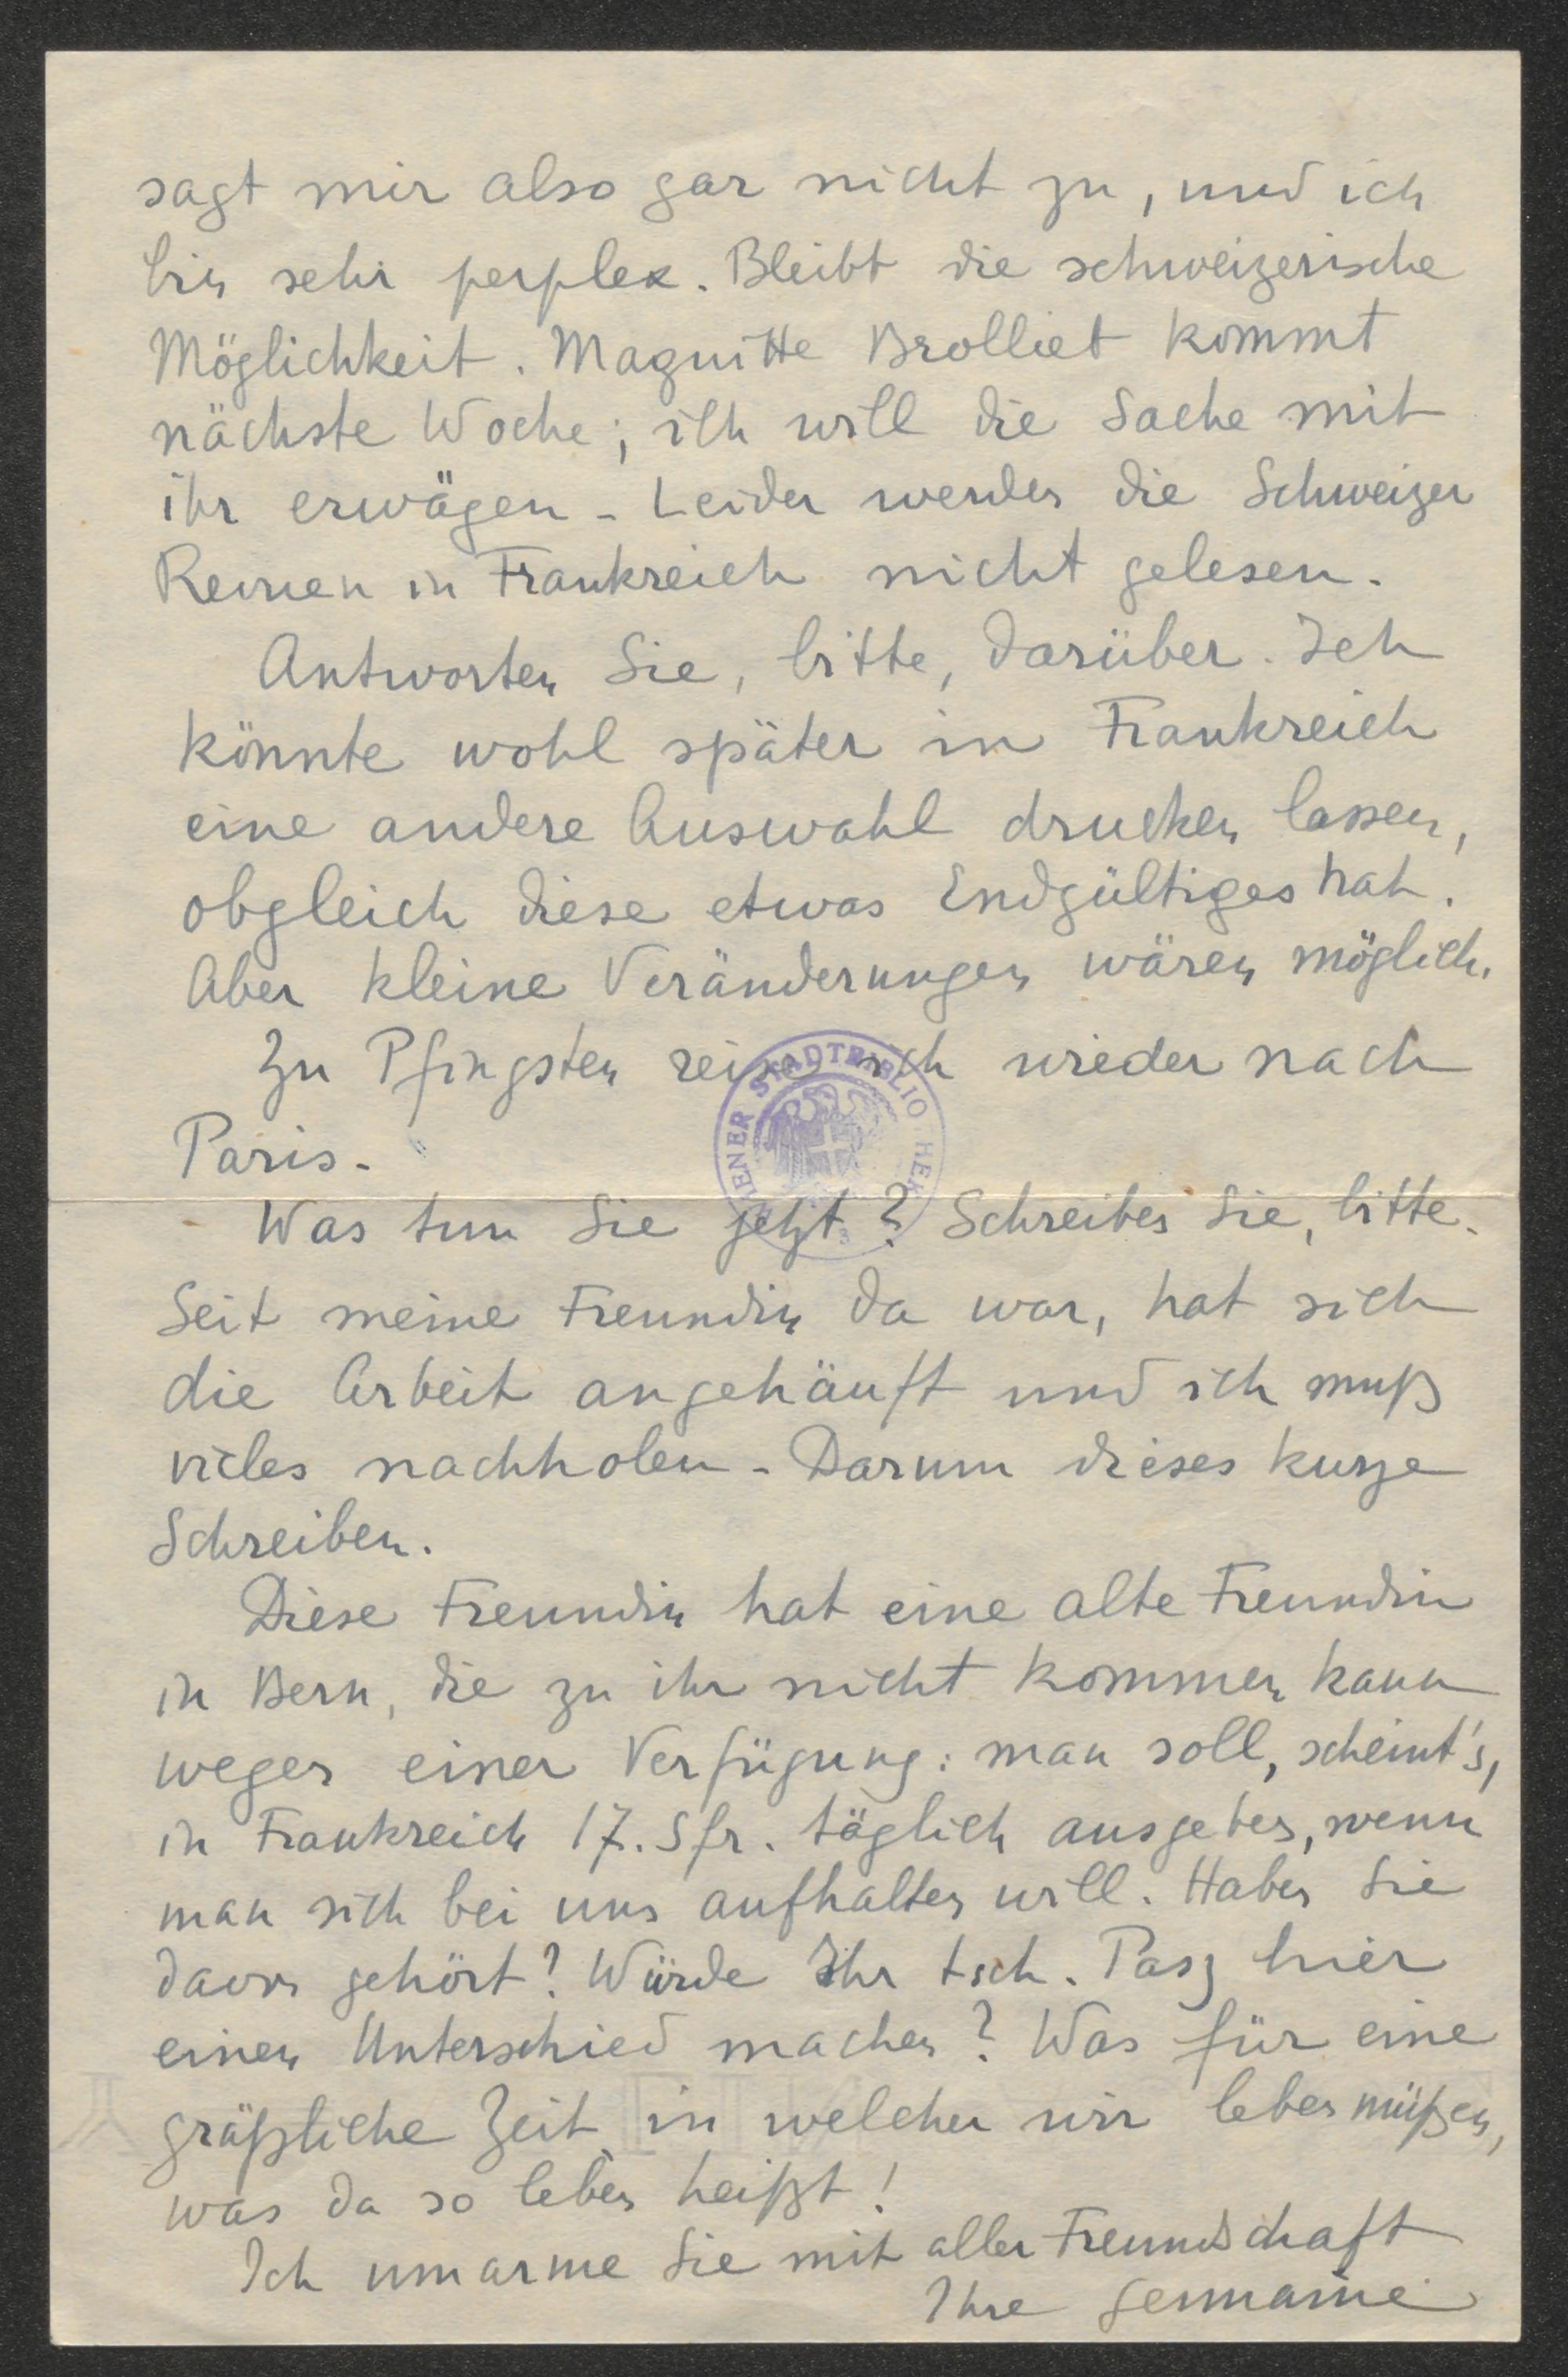 sagt mir also gar nicht zu, und ich
bin sehr perplex. Bleibt die schweizerische
Möglichkeit. Maguitte Brolliet kommt
nächste Woche; ich will die Sache mit
ihr erwägen - Leider werden die Schweizer
Revuen in Frankreich nicht gelesen.
Antworten Sie, bitte, darüber. Ich
könnte wohl später in Frankreich
eine andere Auswahl drucken lassen,
obgleich diese etwas Endgültiges hat.
Aber kleine Veränderungen wären möglich.
Zu Pfingsten reise ich wieder nach
Paris.
WIENER STADTBIBLIOTHEK
Was tun Sie jetzt? Schreiben Sie, bitte.
Seit meine Freundin da war, hat sich
die Arbeit angehäuft und ich muß
vieles nachholen - Darum dieses kurze
Schreiben.
Diese Freundin hat eine alte Freundin
in Bern, die zu ihr nicht kommen kann
wegen einer Verfügung: man soll, scheint's,
in Frankreich 17. Sfr. täglich ausgeben, wenn
man sich bei uns aufhalten will. Haben Sie
davon gehört? Würde Ihr tsch. Pasz hier
einen Unterschied machen? Was für eine
gräßliche Zeit, in welcher wir leben müßen,
was da so leben heißt!
Ich umarme Sie mit aller Freundschaft
Ihre Germaine